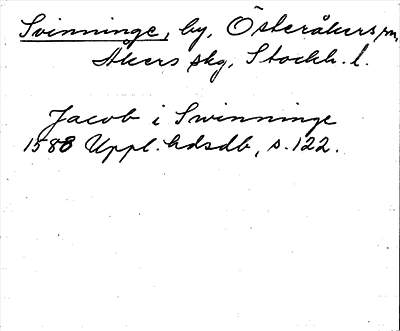 Svinninge, by, Österåkers sn,
Åkers skg, Stockh. l.
Jacob i Swinninge
1588 Uppl. hdsdb, s. 122.